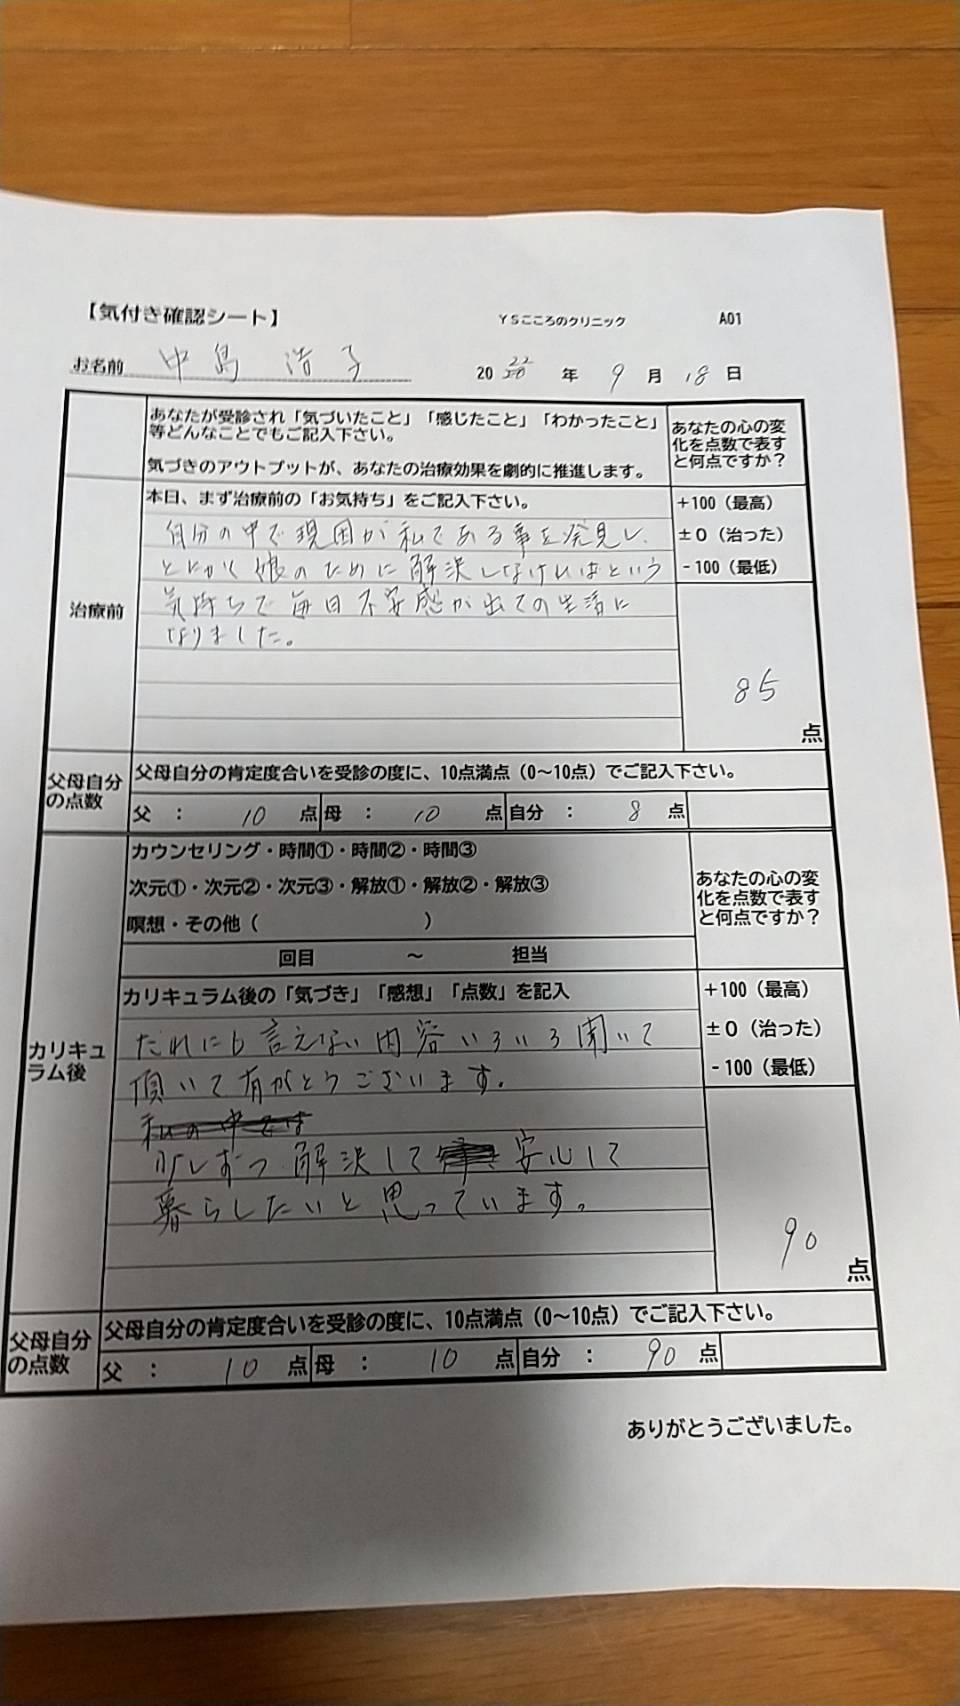 【気付き確認シート】 YSこころのクリニック A01
お名前 中島 浩子 20 22 年 9 月 18 日
あなたが受診され「気づいたこと」「感じたこと」「わかったこと」
等どんなことでもご記入下さい。
気づきのアウトプットが、あなたの治療効果を劇的に推進します。
あなたの心の変
化を点数で表す
と何点ですか？
治療前
本日、まず治療前の「お気持ち」をご記入下さい。
自分の中で現因が私である事を発見し、
とにかく娘のために解決しなければという
気持ちで毎日不安感が出ての生活に
なりました。
+100（最高）
±0（治った）
-100（最低）
85 点
父母自分
の点数
父母自分の肯定度合いを受診の度に、10点満点（0～10点）でご記入下さい。
父 ： 10 点 母 ： 10 点 自分 ： 8 点
カウンセリング・時間①・時間②・時間③
次元①・次元②・次元③・解放①・解放②・解放③
瞑想・その他（ ）
回目 ～ 担当
あなたの心の変
化を点数で表す
と何点ですか？
カリキュ
ラム後
カリキュラム後の「気づき」「感想」「点数」を記入
だれにも言えない内容いろいろ聞いて
頂いて有がとうございます。
私の中では
少しずつ解決して 安心して
暮らしたいと思っています。
+100（最高）
±0（治った）
-100（最低）
90 点
父母自分
の点数
父母自分の肯定度合いを受診の度に、10点満点（0～10点）でご記入下さい。
父 ： 10 点 母 ： 10 点 自分 ： 90 点
ありがとうございました。